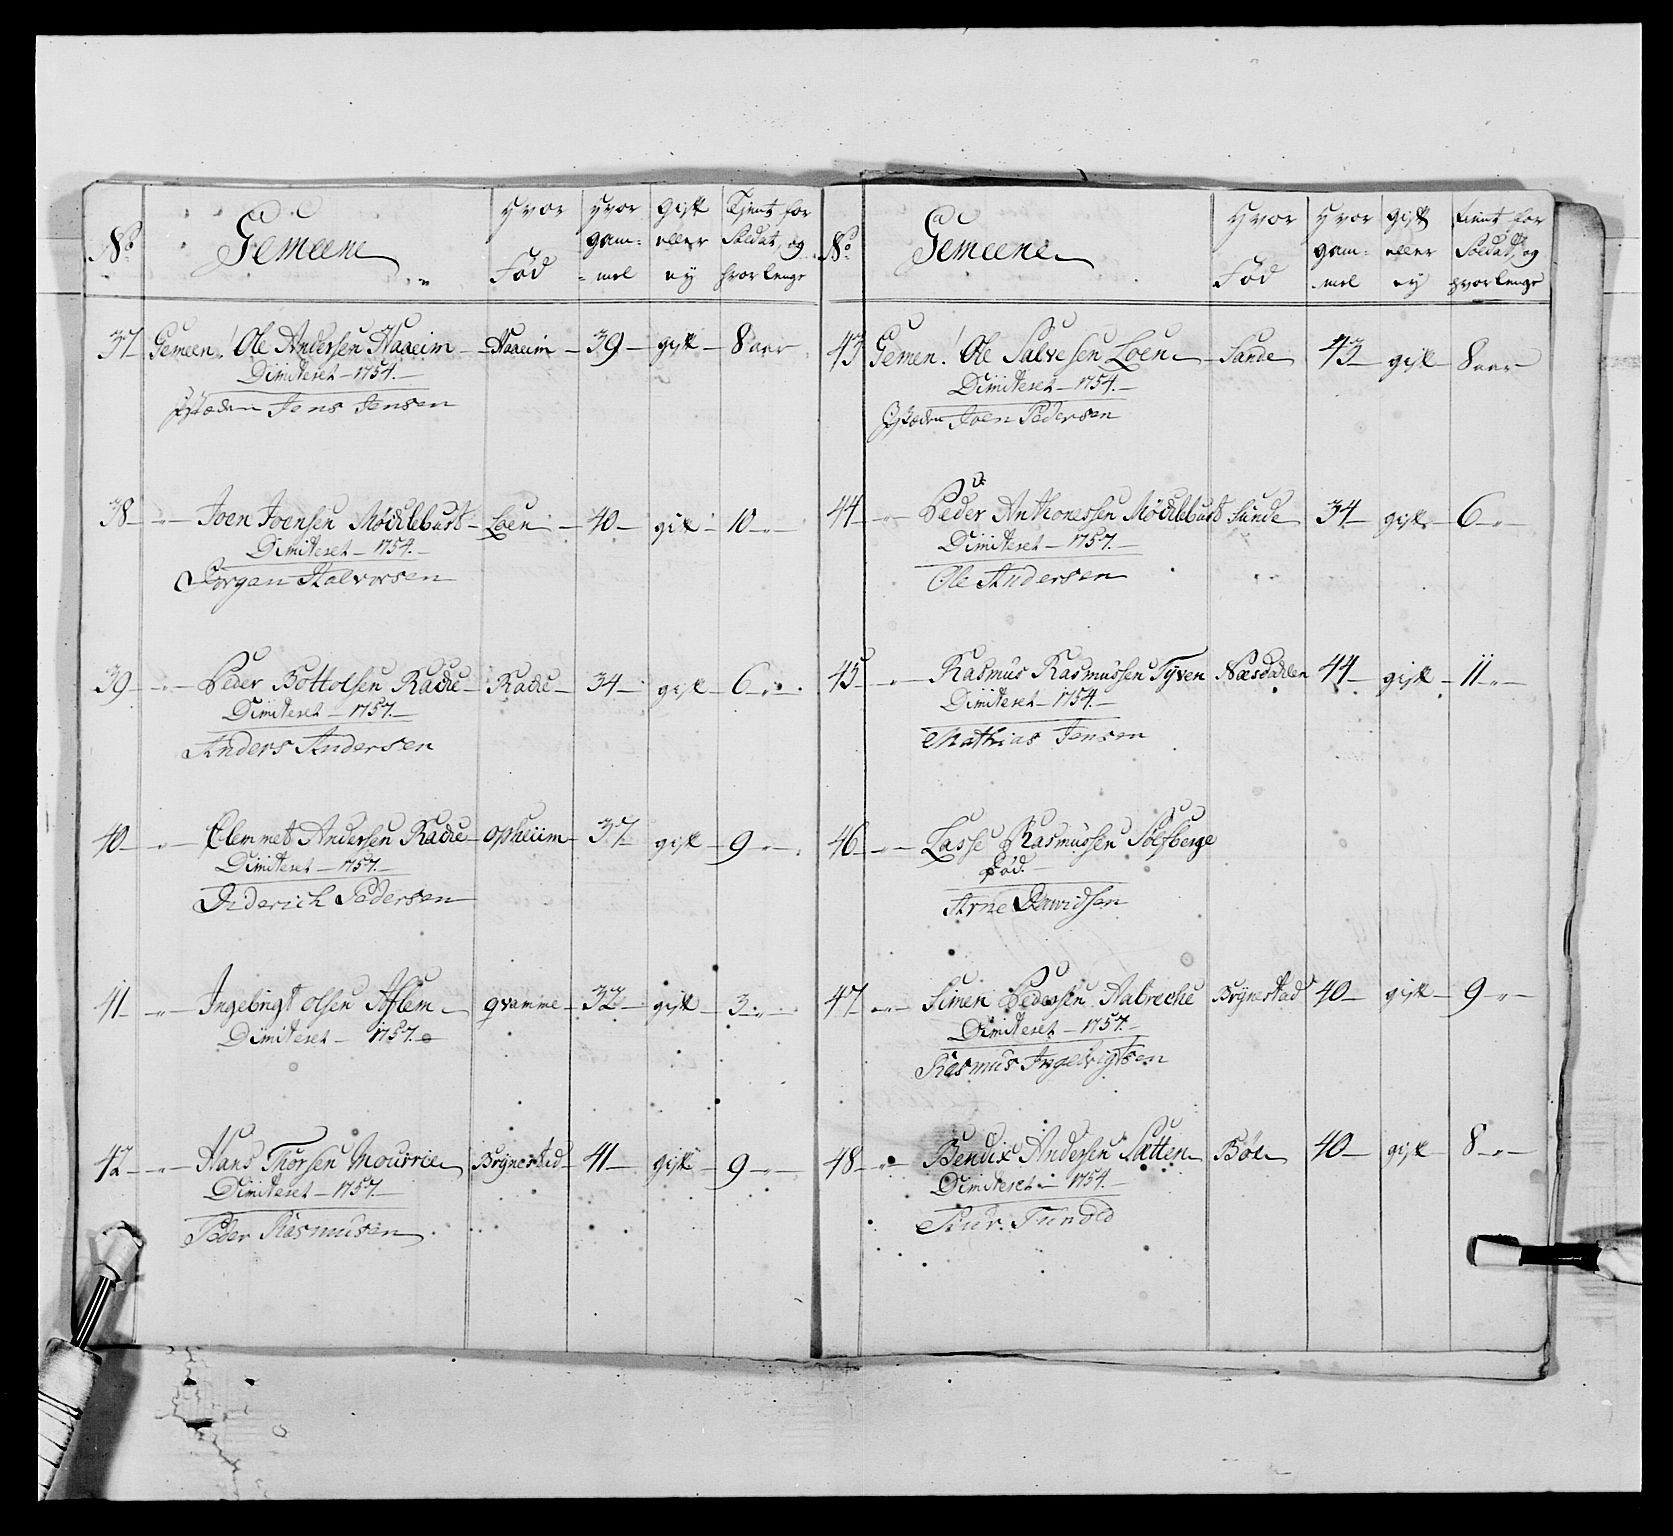 No. Gemeene hvor Fød hvor gam= =mel gift eller ey Tient for Soldat, og hvorlenge
37 Gemeen! Ole Andersen Haaeim Haaeim 39 gift 8 aar
Dimiteret - 1754.
Jens Jensen
38 Joen Joensen Mødlebust Loen 40 gift 10
Dimiteret - 1754.
Jørgen Halvorsen
39 Peder Bottolsen Rade Rade 34 gift 6
Dimiteret - 1757.
Anders Andersen
40 Clemmet Andersen Rade opheiim 37 gift 9
Dimiteret - 1757.
Diderich Pedersen
41 Ingebrigt olsen Aflem qvamme 32 gift 3
Dimiteret - 1757.
42 Hans Thorsen Mourrie Brÿnestad 41 gift 9
Dimiteret - 1757.
Peder Rasmusen
No. Gemeene hvor Fød hvor gam= mel gift eller ey tient for Soldat, og hvorlenge
43 Gemen! Ole Salvesen Loen Sande 43 gift 8 aar
Dimiteret - 1754.
Joen Pedersen
44 Peder Anthonessen Mødlebust Sunde 34 gift 6
Dimiteret - 1757.
Ole Andersen
45 Rasmus Rasmussen Tÿven Næsdahlen 44 gift 11
Dimiteret - 1754.
Mathias Jensen
46 Lasse Rasmussen Solfberge
død.
Arne Dawidsen
47 Simen Pedersen Aabreche Brÿnestad 40 gift 9
Dimiteret - 1757.
Rasmus Ingebrigtsen
48 Bendix Andersen Sætten Böe 40 gift 8
Dimiteret - 1754.